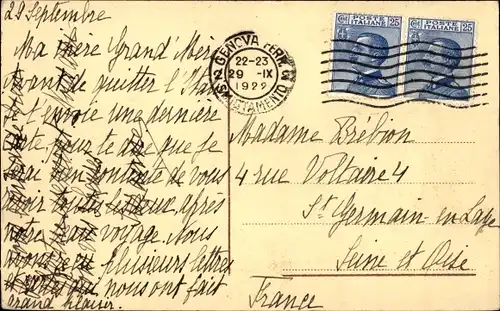 29 Septembre
Ma chère Grand'Mère
avant de quitter l'Italie
je t'envoie une dernière
carte pour te dire que je
serai bien contente de vous
revoir toutes les deux, après
notre beau voyage. Nous
avons eu plusieurs lettres
et cartes qui nous ont fait
grand plaisir.
GENOVA FERR.
22-23
29 -IX
1922
POSTE ITALIANE 25
POSTE ITALIANE 25
Madame Brébion
4 rue Voltaire 4
St Germain-en-Laye
Seine et Oise
France